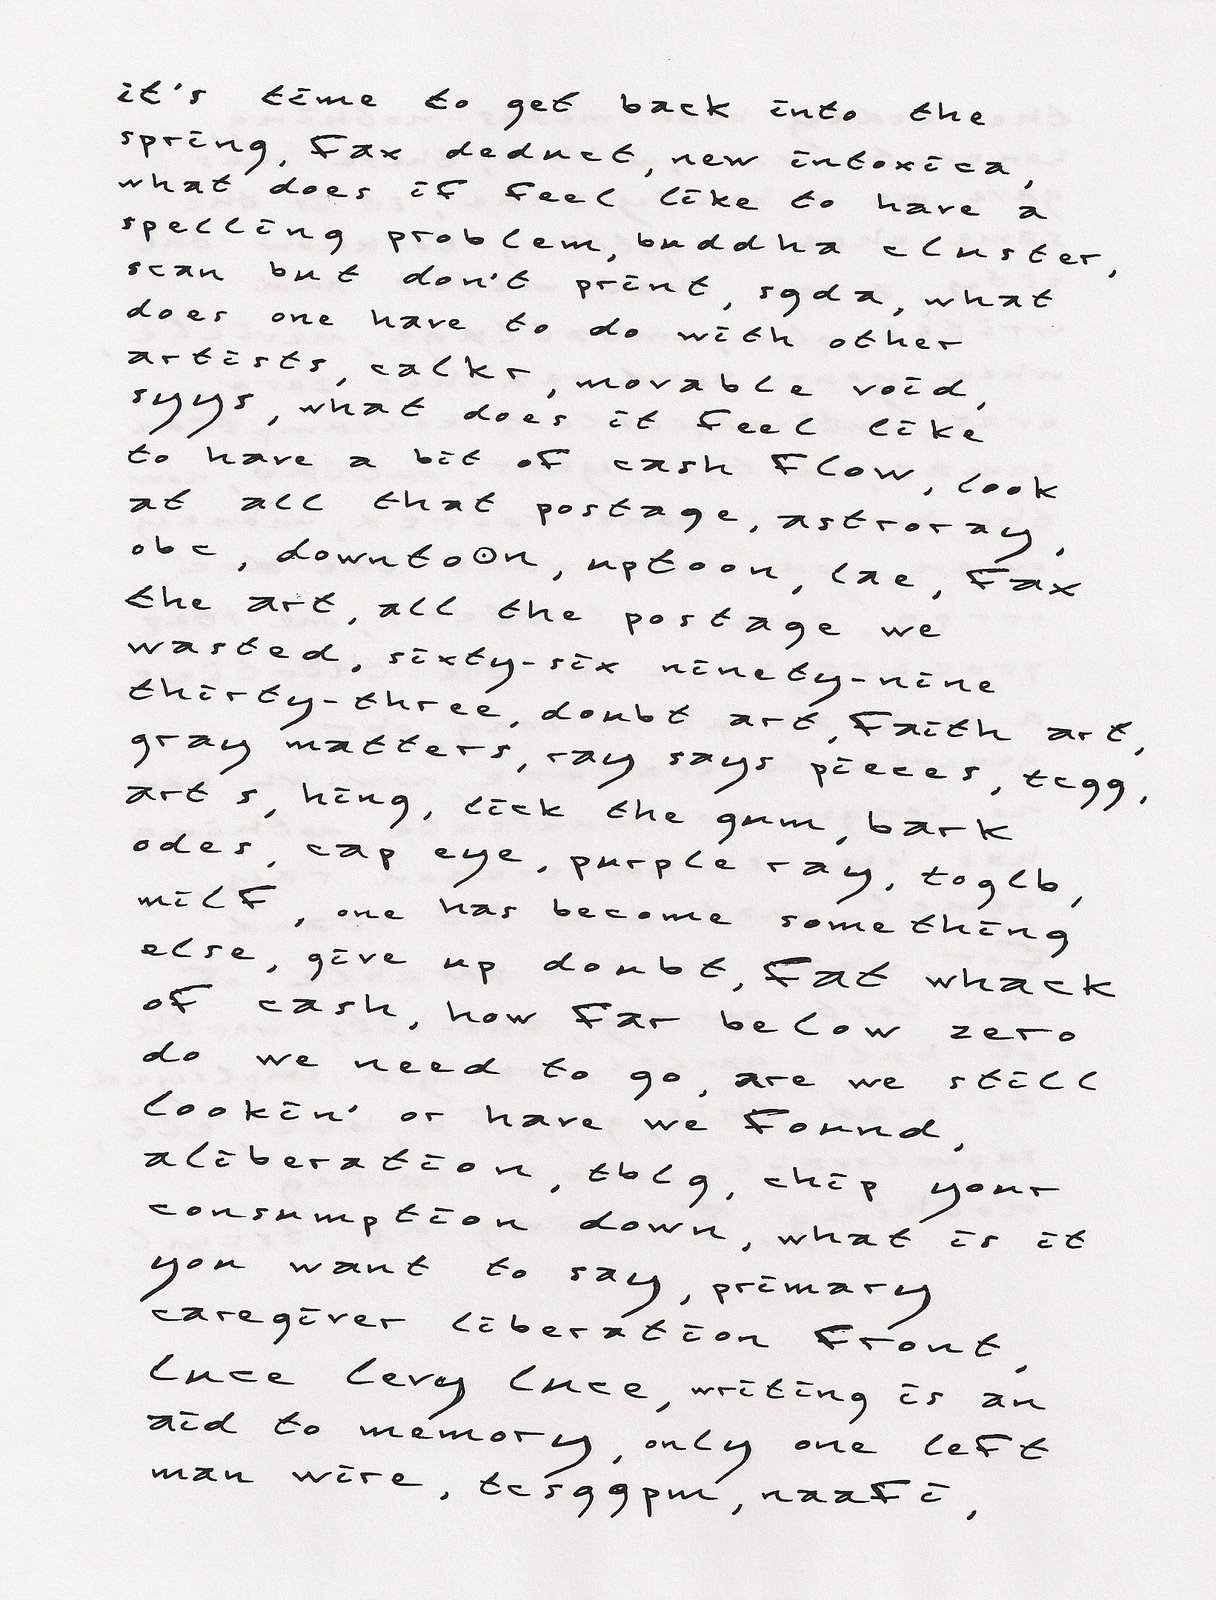 it's time to get back into the
spring, fax deduct, new intoxica,
what does if feel like to have a
spelling problem, buddha cluster,
scan but don't print, sgda, what
does one have to do with other
artists, calkr, movable void,
syys, what does it feel like
to have a bit of cash flow, look
at all that postage, astroray,
obc, downtoʘn, uptoon, lae, fax
the art, all the postage we
wasted, sixty-six ninety-nine
thirty-three, doubt art, faith art,
gray matters, ray says pieces, tcgg,
art s, hing, lick the gum, bark
odes, cap eye, purple ray, toglb,
milf, one has become something
else, give up doubt, fat whack
of cash, how far below zero
do we need to go, are we still
lookin' or have we found,
aliberation, tblg, chip your
consumption down, what is it
you want to say, primary
caregiver liberation front,
luce levy luce, writing is an
aid to memory, only one left
man wire, tcsggpm, naafi,